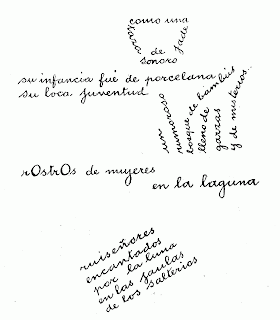 como una
taza
de
jade
sonoro
su infancia fué de porcelana
su loca juventud
un rumoroso
bosque de bambús
lleno de
garzas
y de misterios
rOstrOs de mujeres
en la laguna
ruiseñores
encantados
por la luna
en las jaulas
de los salterios